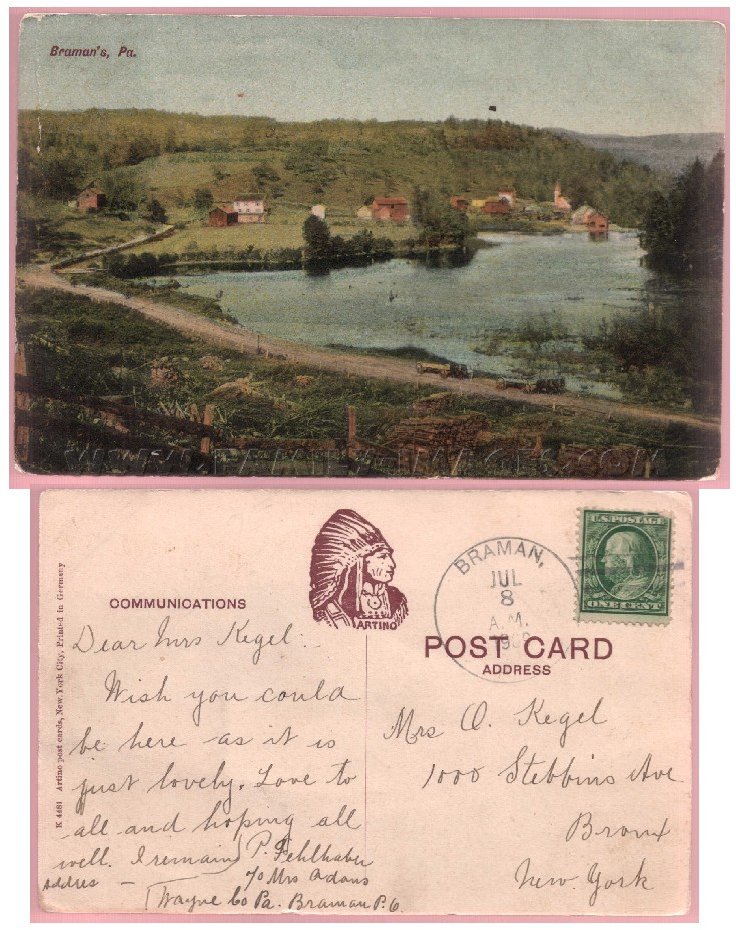 Braman's, Pa.
COMMUNICATIONS
ARTINO
BRAMAN,
JUL
8
A.M.
U.S. POSTAGE
ONE CENT
POST CARD
ADDRESS
K 4481 Artino post cards, New York City, Printed in Germany
Dear Mrs Kegel:
Wish you could
be here as it is
just lovely. Love to
all and hoping all
well. I remain
P. Fehlhaber
Addres —
c/o Mrs Adams
Wayne Co Pa. Braman P.O.
Mrs O. Kegel
1000 Stebbins Ave
Bronx
New York